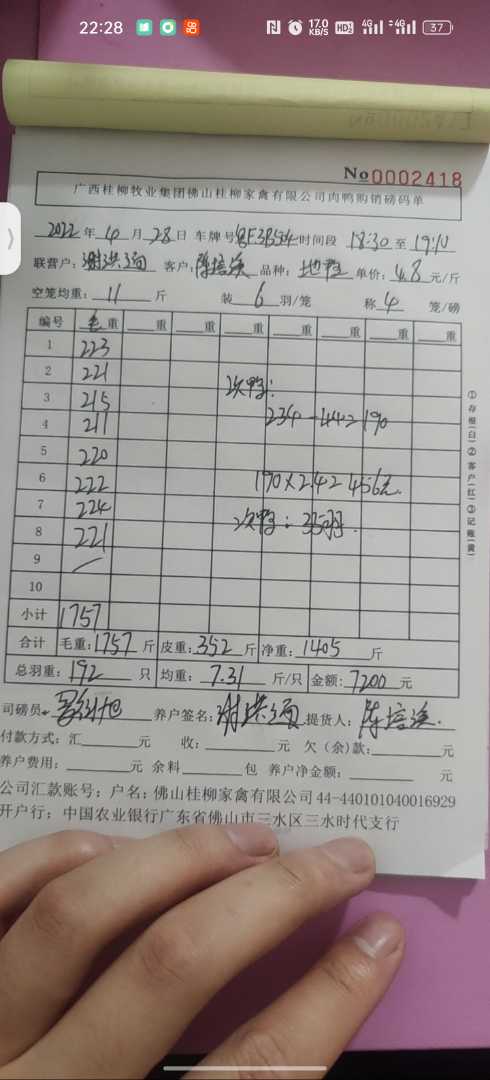 22:28
17.0 KB/S HD2 4G 4G 37
№0002418
广西桂柳牧业集团佛山桂柳家禽有限公司肉鸭购销磅码单
2022年4月28日 车牌号 时间段 18:30 至 19:10
联营户: 谢洪 客户: 陈培 品种: 单价: 4.8 元/斤
空笼均重: 11 斤 装 6 羽/笼 称 4 笼/磅
编号 毛重 重 重 重 重 重 重 重
1 223
2 221
3 215
次鸭:
4 211
234-44=190
5 220
6 222
190×2.4=456元.
7 224
次鸭: 35羽.
8 221
9
10
小计 1757
合计 毛重: 1757 斤 皮重: 352 斤 净重: 1405 斤
总羽重: 192 只 均重: 7.31 斤/只 金额: 7200 元
司磅员: 养户签名: 谢洪 提货人: 陈培
付款方式: 汇 元 收: 元 欠(余)款: 元
养户费用: 元 余料 包 养户净金额: 元
公司汇款账号: 户名: 佛山桂柳家禽有限公司 44-440101040016929
开户行: 中国农业银行广东省佛山市三水区三水时代支行
①存根(白)②客户(红)③记账(黄)